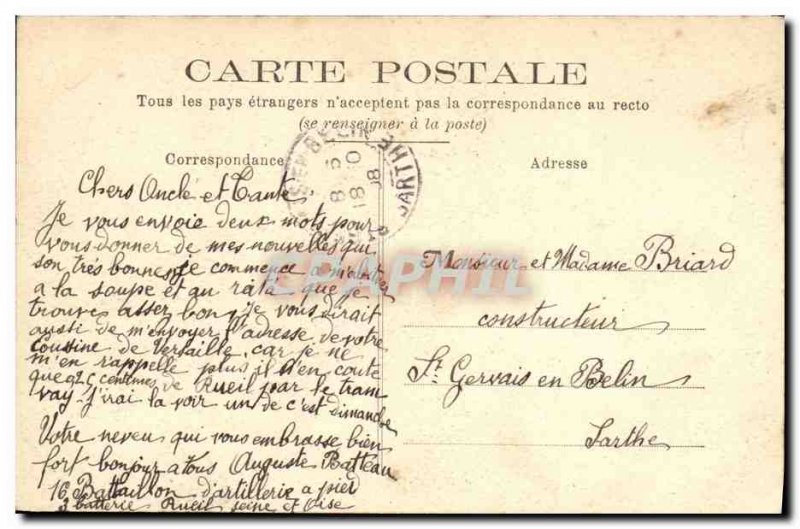 CARTE POSTALE
Tous les pays étrangers n'acceptent pas la correspondance au recto
(se renseigner à la poste)
Correspondance
Chers Oncle et Tante
Je vous envoie deux mots pour
vous donner de mes nouvelles qui
son très bonnes je commence a
a la soupe et au rata que je
trouve asser bon je vous dirait
aussi de m'envoyer l'adresse de votre
Cousine de Versaille car je ne
m'en rappelle plus il n'en coute
que 25 centime de Rueil par le tram
vay J'irai la voir un de c'est dimanche
Votre neveu qui vous embrasse bien
fort bonjour a tous Auguste Batteau
16 Battaillon d'artillerie a pied
3 batterie Rueil seine et Oise
Adresse
Monsieur et Madame Briard
constructeur
St Gervais en Belin
Sarthe
BELIN SARTHE
CPAPHIL